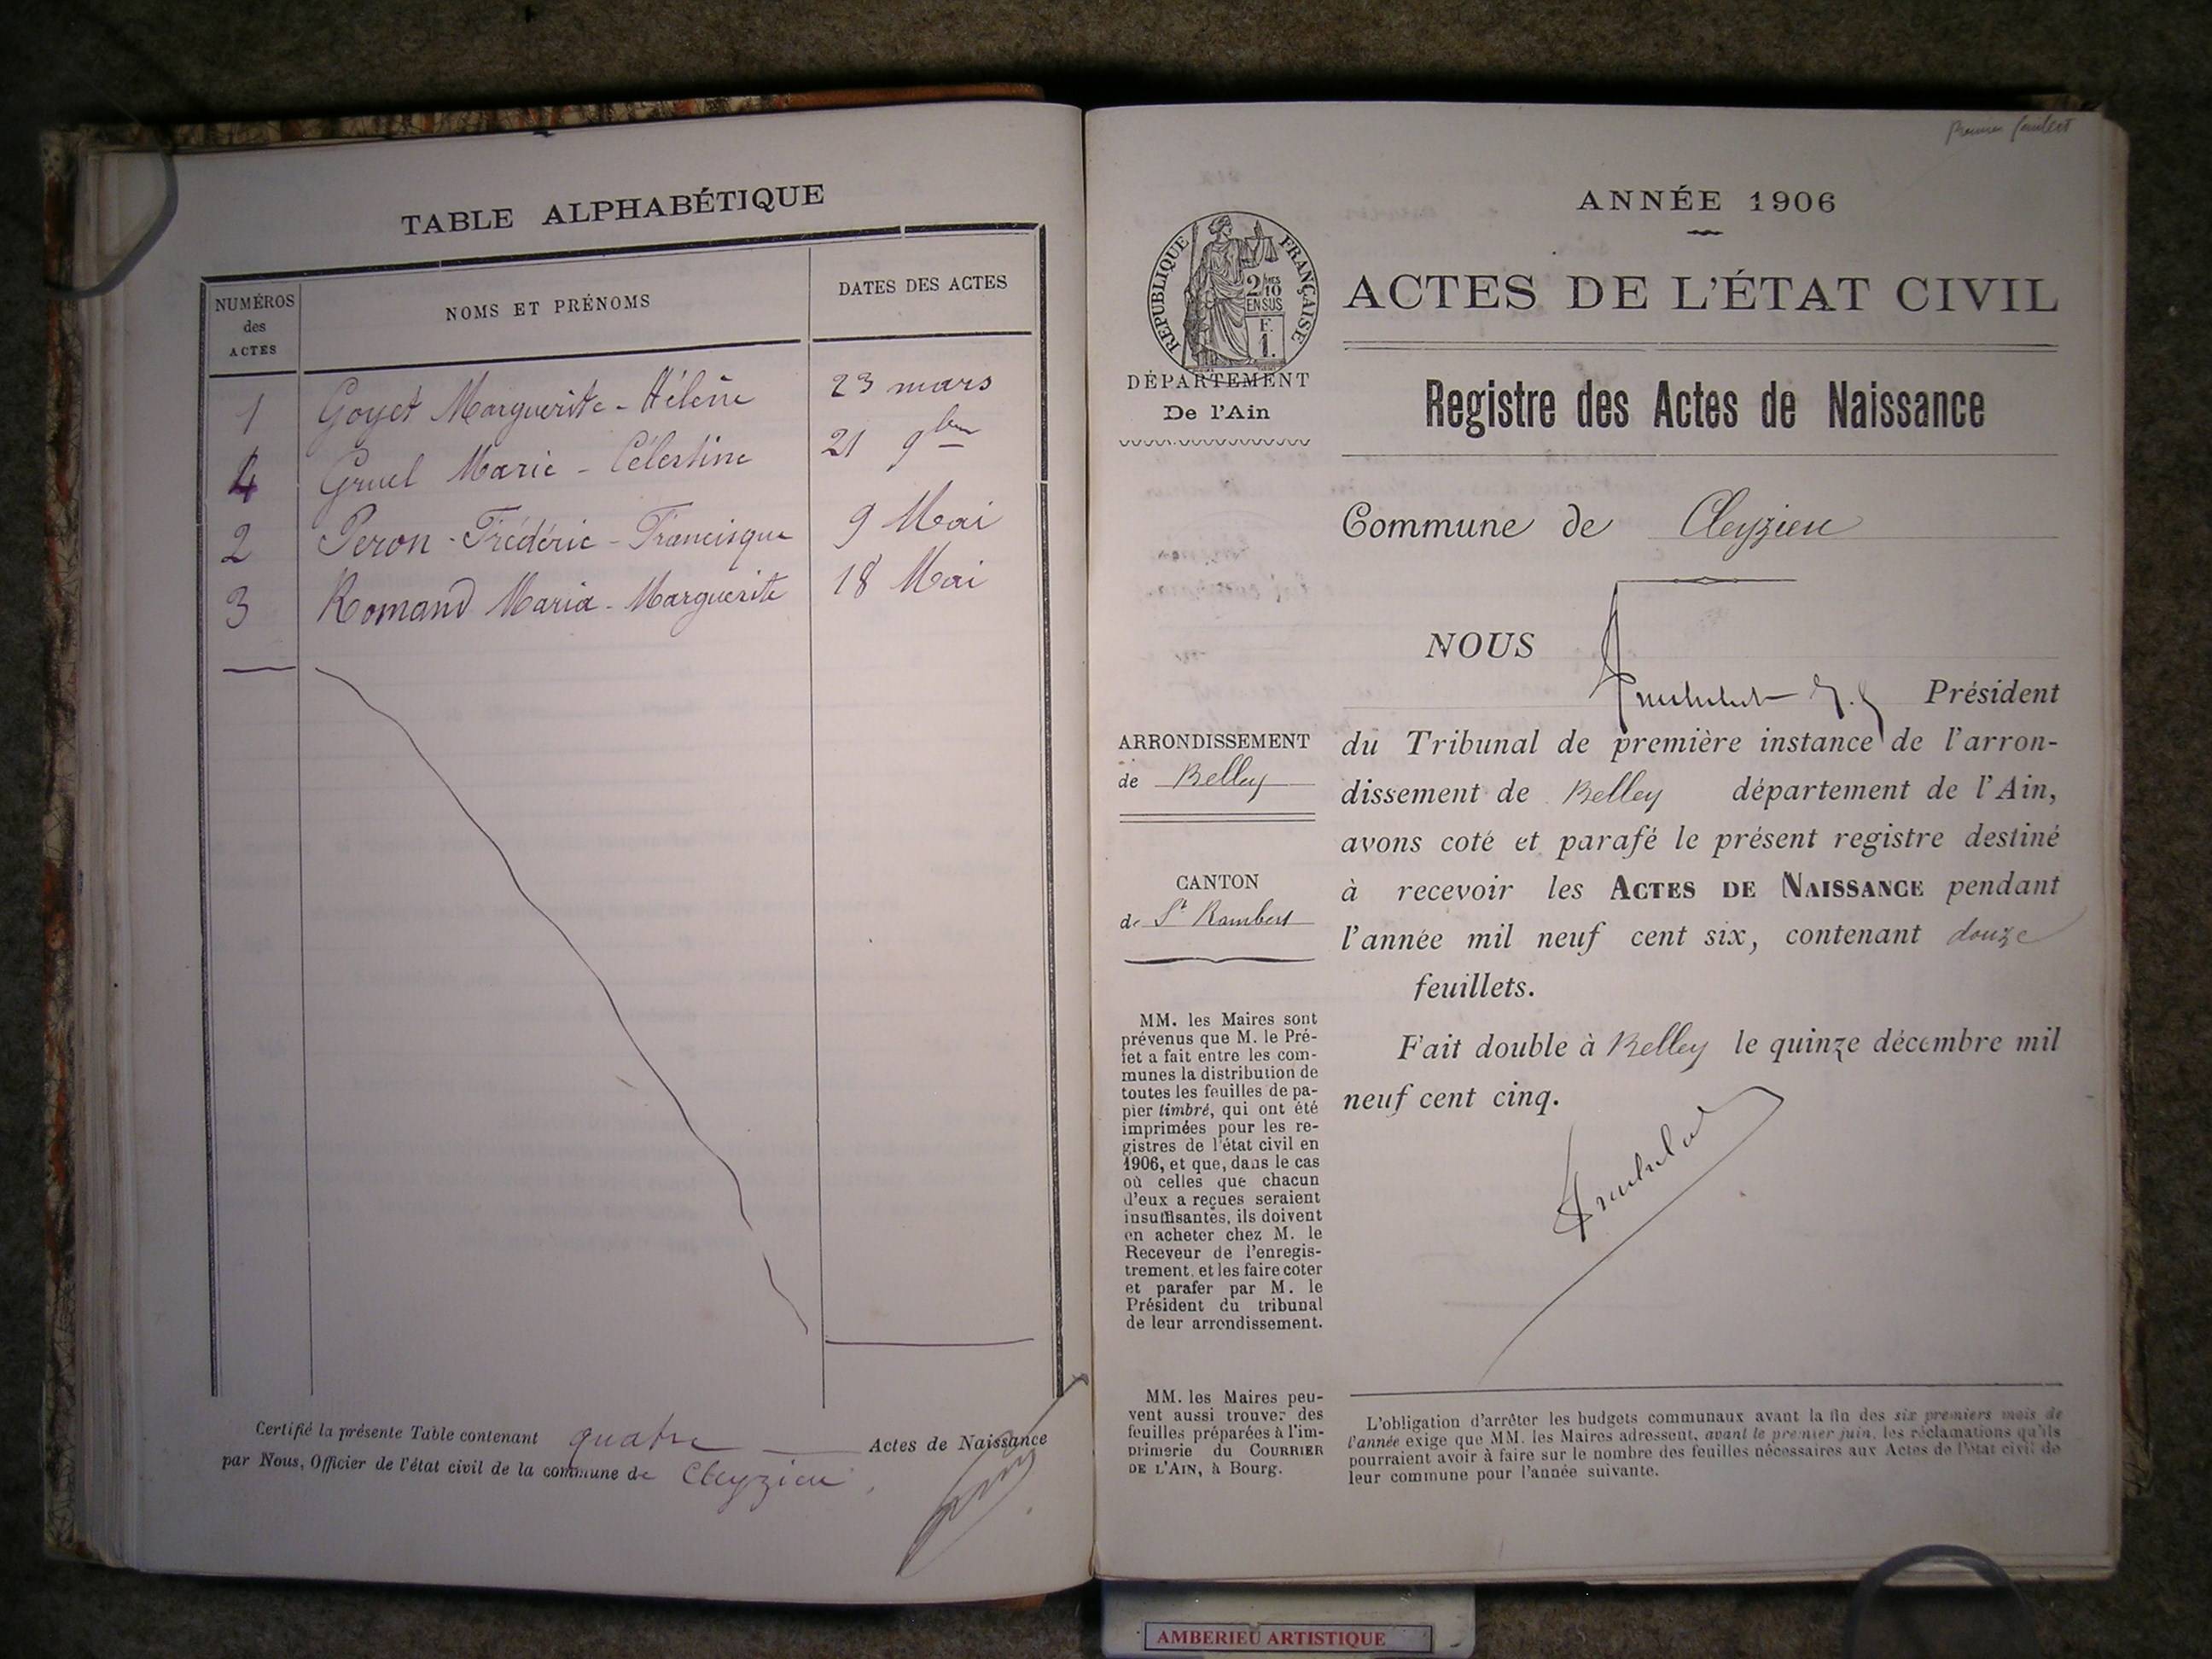 TABLE ALPHABÉTIQUE
NUMÉROS
des
ACTES
NOMS ET PRÉNOMS
DATES DES ACTES
1 Goyet Marguerite - Hélène 23 mars
4 Gruel Marie - Célestine 21 9bre
2 Peron - Frédéric - Francisque 9 Mai
3 Romand Maria - Marguerite 18 Mai
Certifié la présente Table contenant quatre Actes de Naissance
par Nous, Officier de l'état civil de la commune de Cleyzieu
premier feuillet
ANNÉE 1906
RÉPUBLIQUE FRANÇAISE
2/10
EN SUS
F.
1.
DÉPARTEMENT
De l'Ain
ACTES DE L'ÉTAT CIVIL
Registre des Actes de Naissance
Commune de Cleyzieu
NOUS
Président
du Tribunal de première instance de l'arron-
dissement de Belley département de l'Ain,
avons coté et parafé le présent registre destiné
à recevoir les ACTES DE NAISSANCE pendant
l'année mil neuf cent six, contenant douze
feuillets.
Fait double à Belley le quinze décembre mil
neuf cent cinq.
ARRONDISSEMENT
de Belley
CANTON
de St Rambert
MM. les Maires sont
prévenus que M. le Pré-
fet a fait entre les com-
munes la distribution de
toutes les feuilles de pa-
pier timbré, qui ont été
imprimées pour les re-
gistres de l'état civil en
1906, et que, dans le cas
où celles que chacun
d'eux a reçues seraient
insuffisantes, ils doivent
en acheter chez M. le
Receveur de l'enregis-
trement, et les faire coter
et parafer par M. le
Président du tribunal
de leur arrondissement.
MM. les Maires peu-
vent aussi trouver des
feuilles préparées à l'im-
primerie du COURRIER
DE L'AIN, à Bourg.
L'obligation d'arrêter les budgets communaux avant la fin des six premiers mois de
l'année exige que MM. les Maires adressent, avant le premier juin, les réclamations qu'ils
pourraient avoir à faire sur le nombre des feuilles nécessaires aux Actes de l'état civil de
leur commune pour l'année suivante.
AMBERIEU ARTISTIQUE